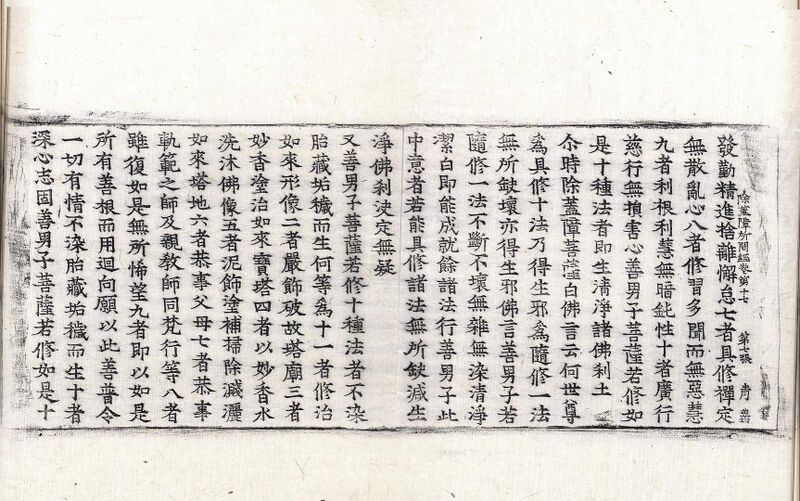 除蓋障所問經卷第十七 第 張 靑
發勤精進捨離懈怠七者具修禪定
無散亂心八者修習多聞而無惡慧
九者利根利慧無暗鈍性十者廣行
慈行無損害心善男子菩薩若修如
是十種法者即生清淨諸佛刹土
尒時除蓋障菩薩白佛言云何世尊
爲具修十法乃得生邪爲隨修一法
無所缺壞亦得生邪佛言善男子若
隨修一法不斷不壞無雜無染清淨
潔白即能成就餘諸法行善男子此
中意者若能具修諸法無所缺減生
淨佛刹決定無疑
又善男子菩薩若修十種法者不染
胎藏垢穢而生何等爲十一者修治
如來形像二者嚴飾破故塔廟三者
妙香塗治如來寶塔四者以妙香水
洗沐佛像五者泥飾塗補掃除滅灑
如來塔地六者恭事父母七者恭事
軌範之師及親教師同梵行等八者
雖復如是無所悕望九者即以如是
所有善根而用迴向願以此善普令
一切有情不染胎藏垢穢而生十者
深心志固善男子菩薩若修如是十